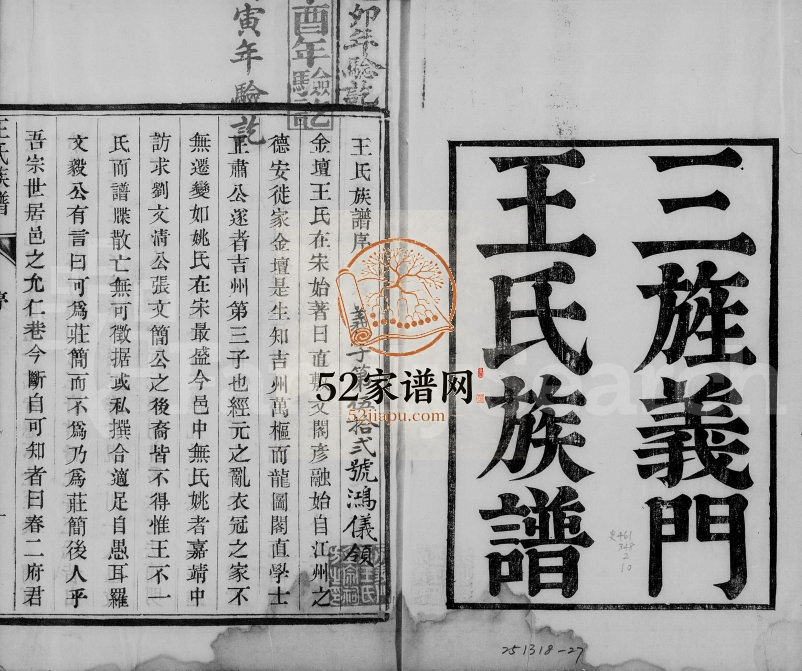 三旌義門
王氏族譜
卯年驗訖
酉年驗訖
寅年驗訖
王氏族譜序
義字第伍拾弍號鴻儀領
金壇王氏在宋始著曰直閣彥融始自江州之
德安徙家金壇是生知吉州萬樞而龍圖閣直學士
正肅公遂者吉州第三子也經元之亂衣冠之家不
無遷變如姚氏在宋最盛今邑中無氏姚者嘉靖中
訪求劉文清公張文簡公之後裔皆不得惟王不一
氏而譜牒散亡無可徵据或私撰合適足自愚耳羅
文毅公有言曰可為莊簡而不為乃為莊簡後人乎
吾宗世居邑之允仁巷今斷自可知者曰春二府君
王氏族譜
序
一
52家谱网
52jiapu.com
史461
348
2
10
251318-27